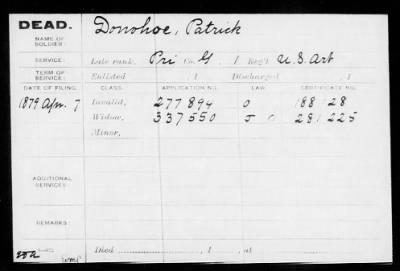 DEAD. Donohoe, Patrick
NAME OF SOLDIER:
SERVICE: Late rank, Pri Co. G, 1 Reg't U.S. Art
TERM OF SERVICE: Enlisted , 1 Discharged , 1
DATE OF FILING. CLASS. APPLICATION NO. LAW. CERTIFICATE NO.
1879 Apr. 7 Invalid, 277894 O 188128
Widow, 337550 J C 281225
Minor,
ADDITIONAL SERVICES:
REMARKS:
Died , 1 , at